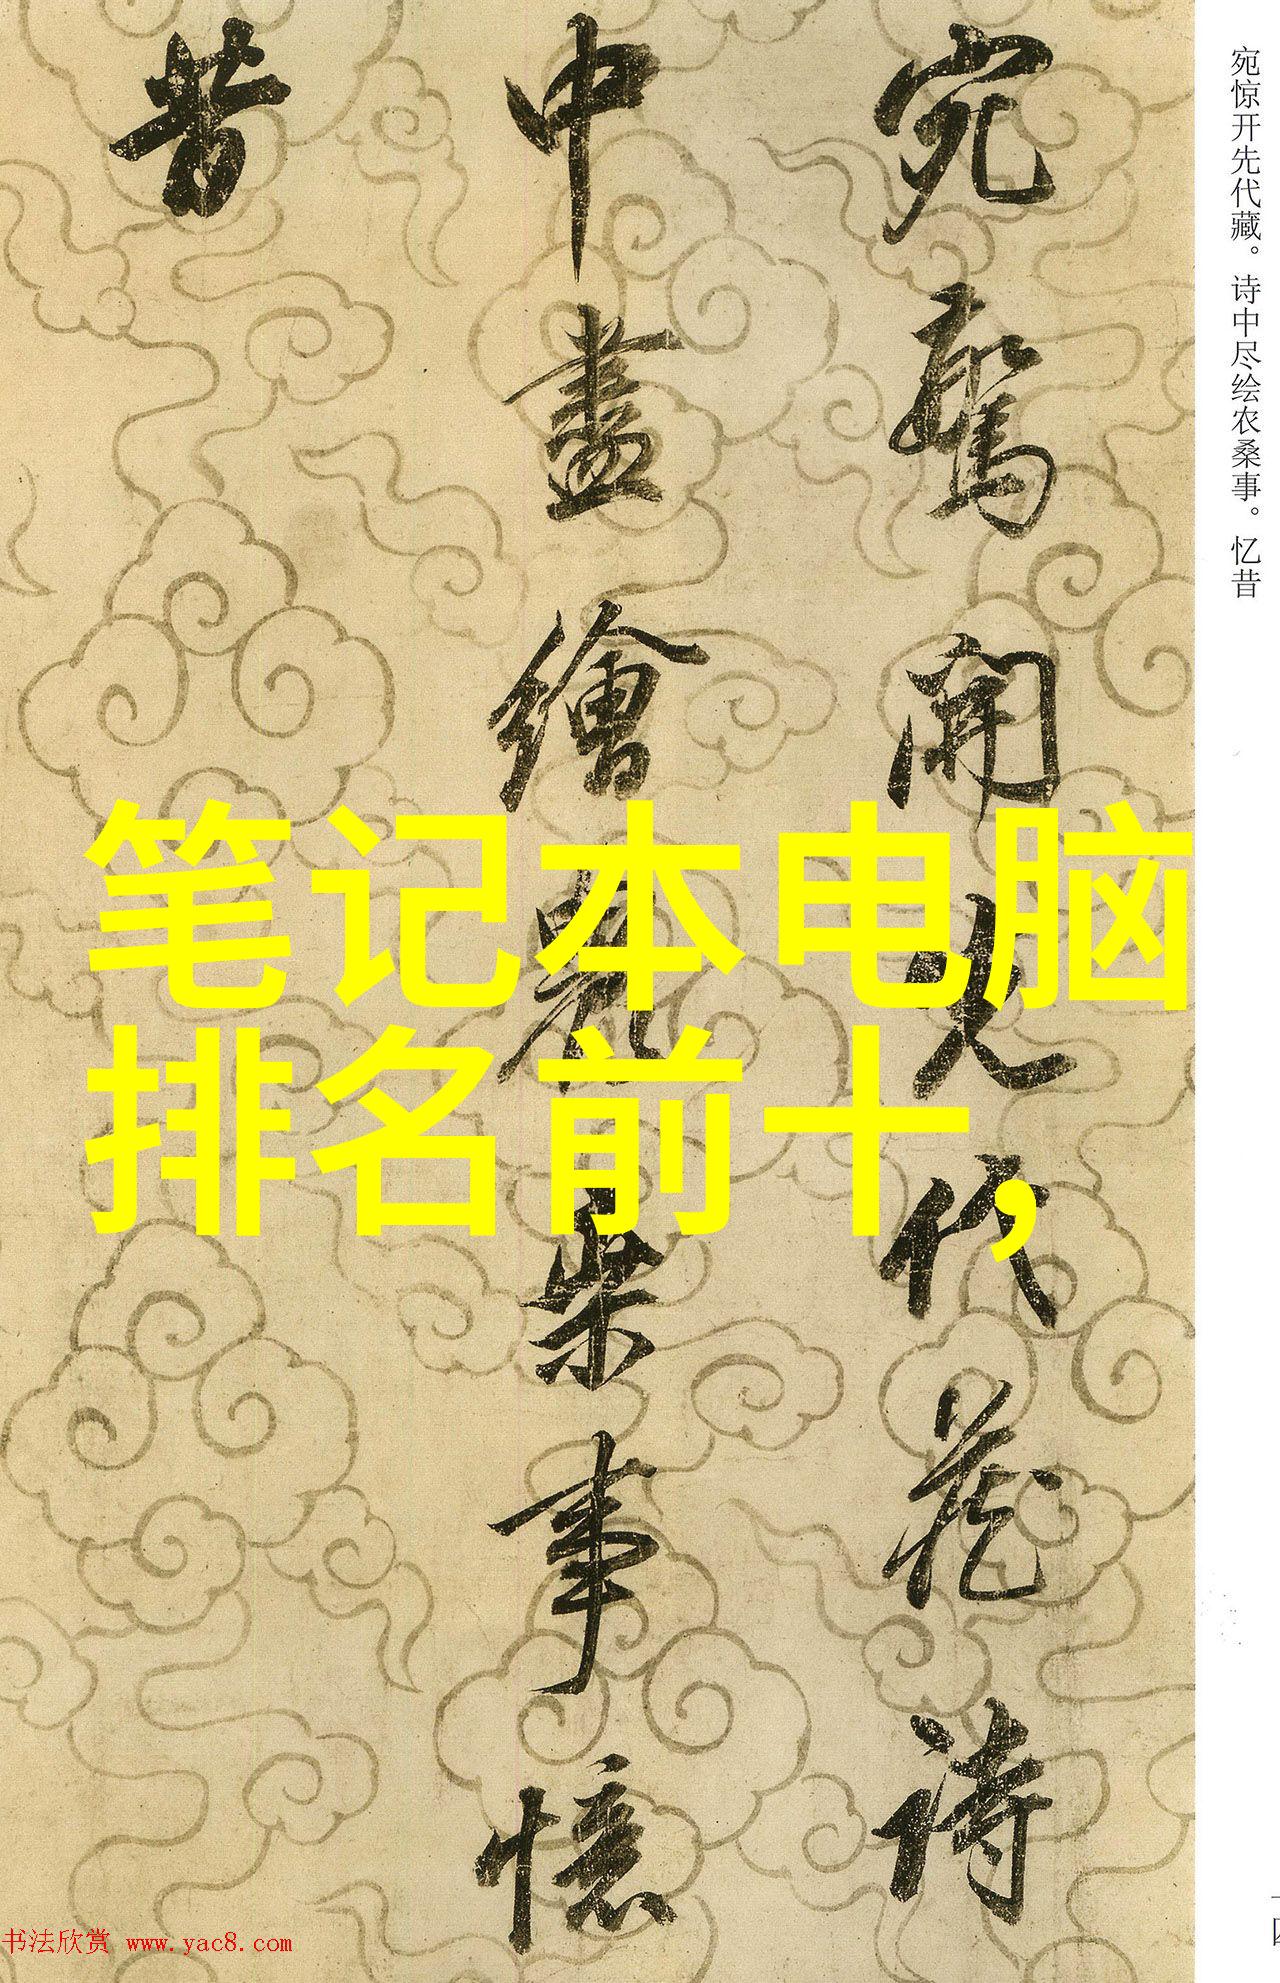 宛驚開先代藏詩
中盡繪農桒事憶
昔
宛惊开先代藏。诗中尽绘农桑事。忆昔
笔记本电脑
排名前十，
书法欣赏 www.yac8.com